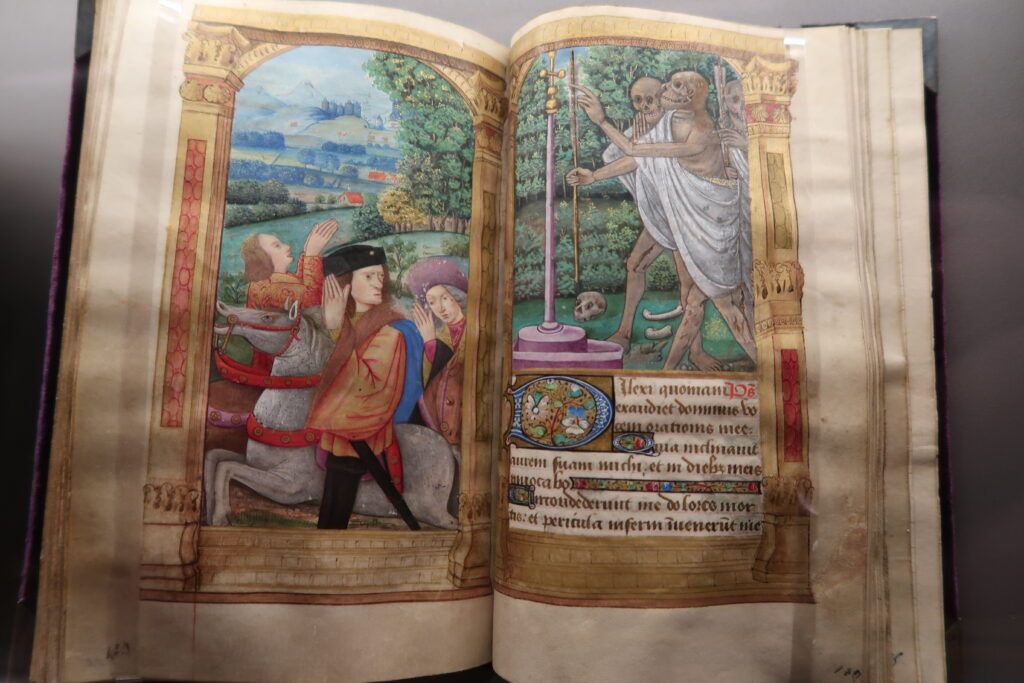 Dilexi quoniam Ps̄
exaudiet dominus vo
cem orationis mee:
Quia inclinauit
aurem suam michi, et in diebꝫ meis
inuocabo
Circūdederunt me dolores mor
tis: et pericula inferni īuenerūt me
189